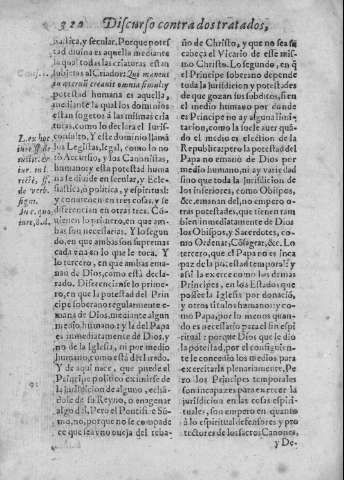 320 Discurso contra dos tratados,
siastica, y secular. Porque potes
tad divina es aquella mediante
la qual todas las criaturas estan
subjetas al Criador: Qui manens
in æternū creavit omnia simul: y
potestad humana es aquella,
mediante la qual los dominios
estan sugetos á las mismas cria
turas, como lo declara el Juris-
consulto. Y este dominio llamā
los Legistas, legal, como lo no
tó Accursio, y los Canonistas,
humano: y esta potestad huma
na se divide en secular, y Ecle-
siastica, ò politica, y espiritual:
y convienen en tres cosas, y se
diferencian en otras tres. Có-
vienen lo primero, en que am
bas son necessarias. Y lo segun
do, en que ambas son supremas
cada vna en lo que le toca. Y
lo tercero, en que ambas ema-
nan de Dios, como está decla-
rado. Diferencianse lo prime-
ro, en que la potestad del Prin
cipe soberano regularmente e-
mana de Dios, mediante algun
medio humano: y la del Papa
es immediatamente de Dios, y
no de la Iglesia, ni por medio
humano, como está dicho redo.
Y de aqui nace, que puede el
Principe politico eximirse de
la jurisdicion de alguno, echā-
dose de su Reyno, o enagenar
algo dél. Pero el Pontifice Sū-
mo, no, porque no se compade
ce que se ay no oveja del reba-
L. ex hoc
iure ff. de
iustit. &
iur.
ff.
de verb.
signi.
ño de Christo, y que no sea su
cabeça el Vicario de esse mis-
mo Christo. Lo segundo, en q̄
el Principe soberano depende
toda la jurisdicion y potestades
de que gozan sus subditos, si en
el medio humano por donde
es Principe no ay alguna limi-
tacion, como la suele aver quā-
do el medio es eleccion de la
Republica: pero la potestad del
Papa no emanó de Dios por
medio humano, ni ay varie dad
sino que toda la jurisdicion de
los inferiores, como Obispos,
&c. emanan del, no empero o-
tras potestades, que tienen tam
bien immediatamente de Dios
los Obispos, y Sacerdotes, co-
mo Ordenar, Cōsagrar, &c. Lo
tercero, que el Papa no es inca
paz de la potestad temporal: y
assi la exerce como los demas
Principes, en los Estados que
possee la Iglesia por donació,
y otros titulos humanos: y co-
mo Papa, por lo menos quan-
do es necessario para el fin espi
ritual: porque Dios que le dio
la potestad, por el consiguien-
te le concedio los medios para
exercitarla plenariamente. Pe
ro los Principes temporales
son incapazes para exercer la
jurisdicion en las cosas espiri-
tuales, son empero en quanto
á lo espiritual defensores y pro
tectores de los sacros Canones,
y De-